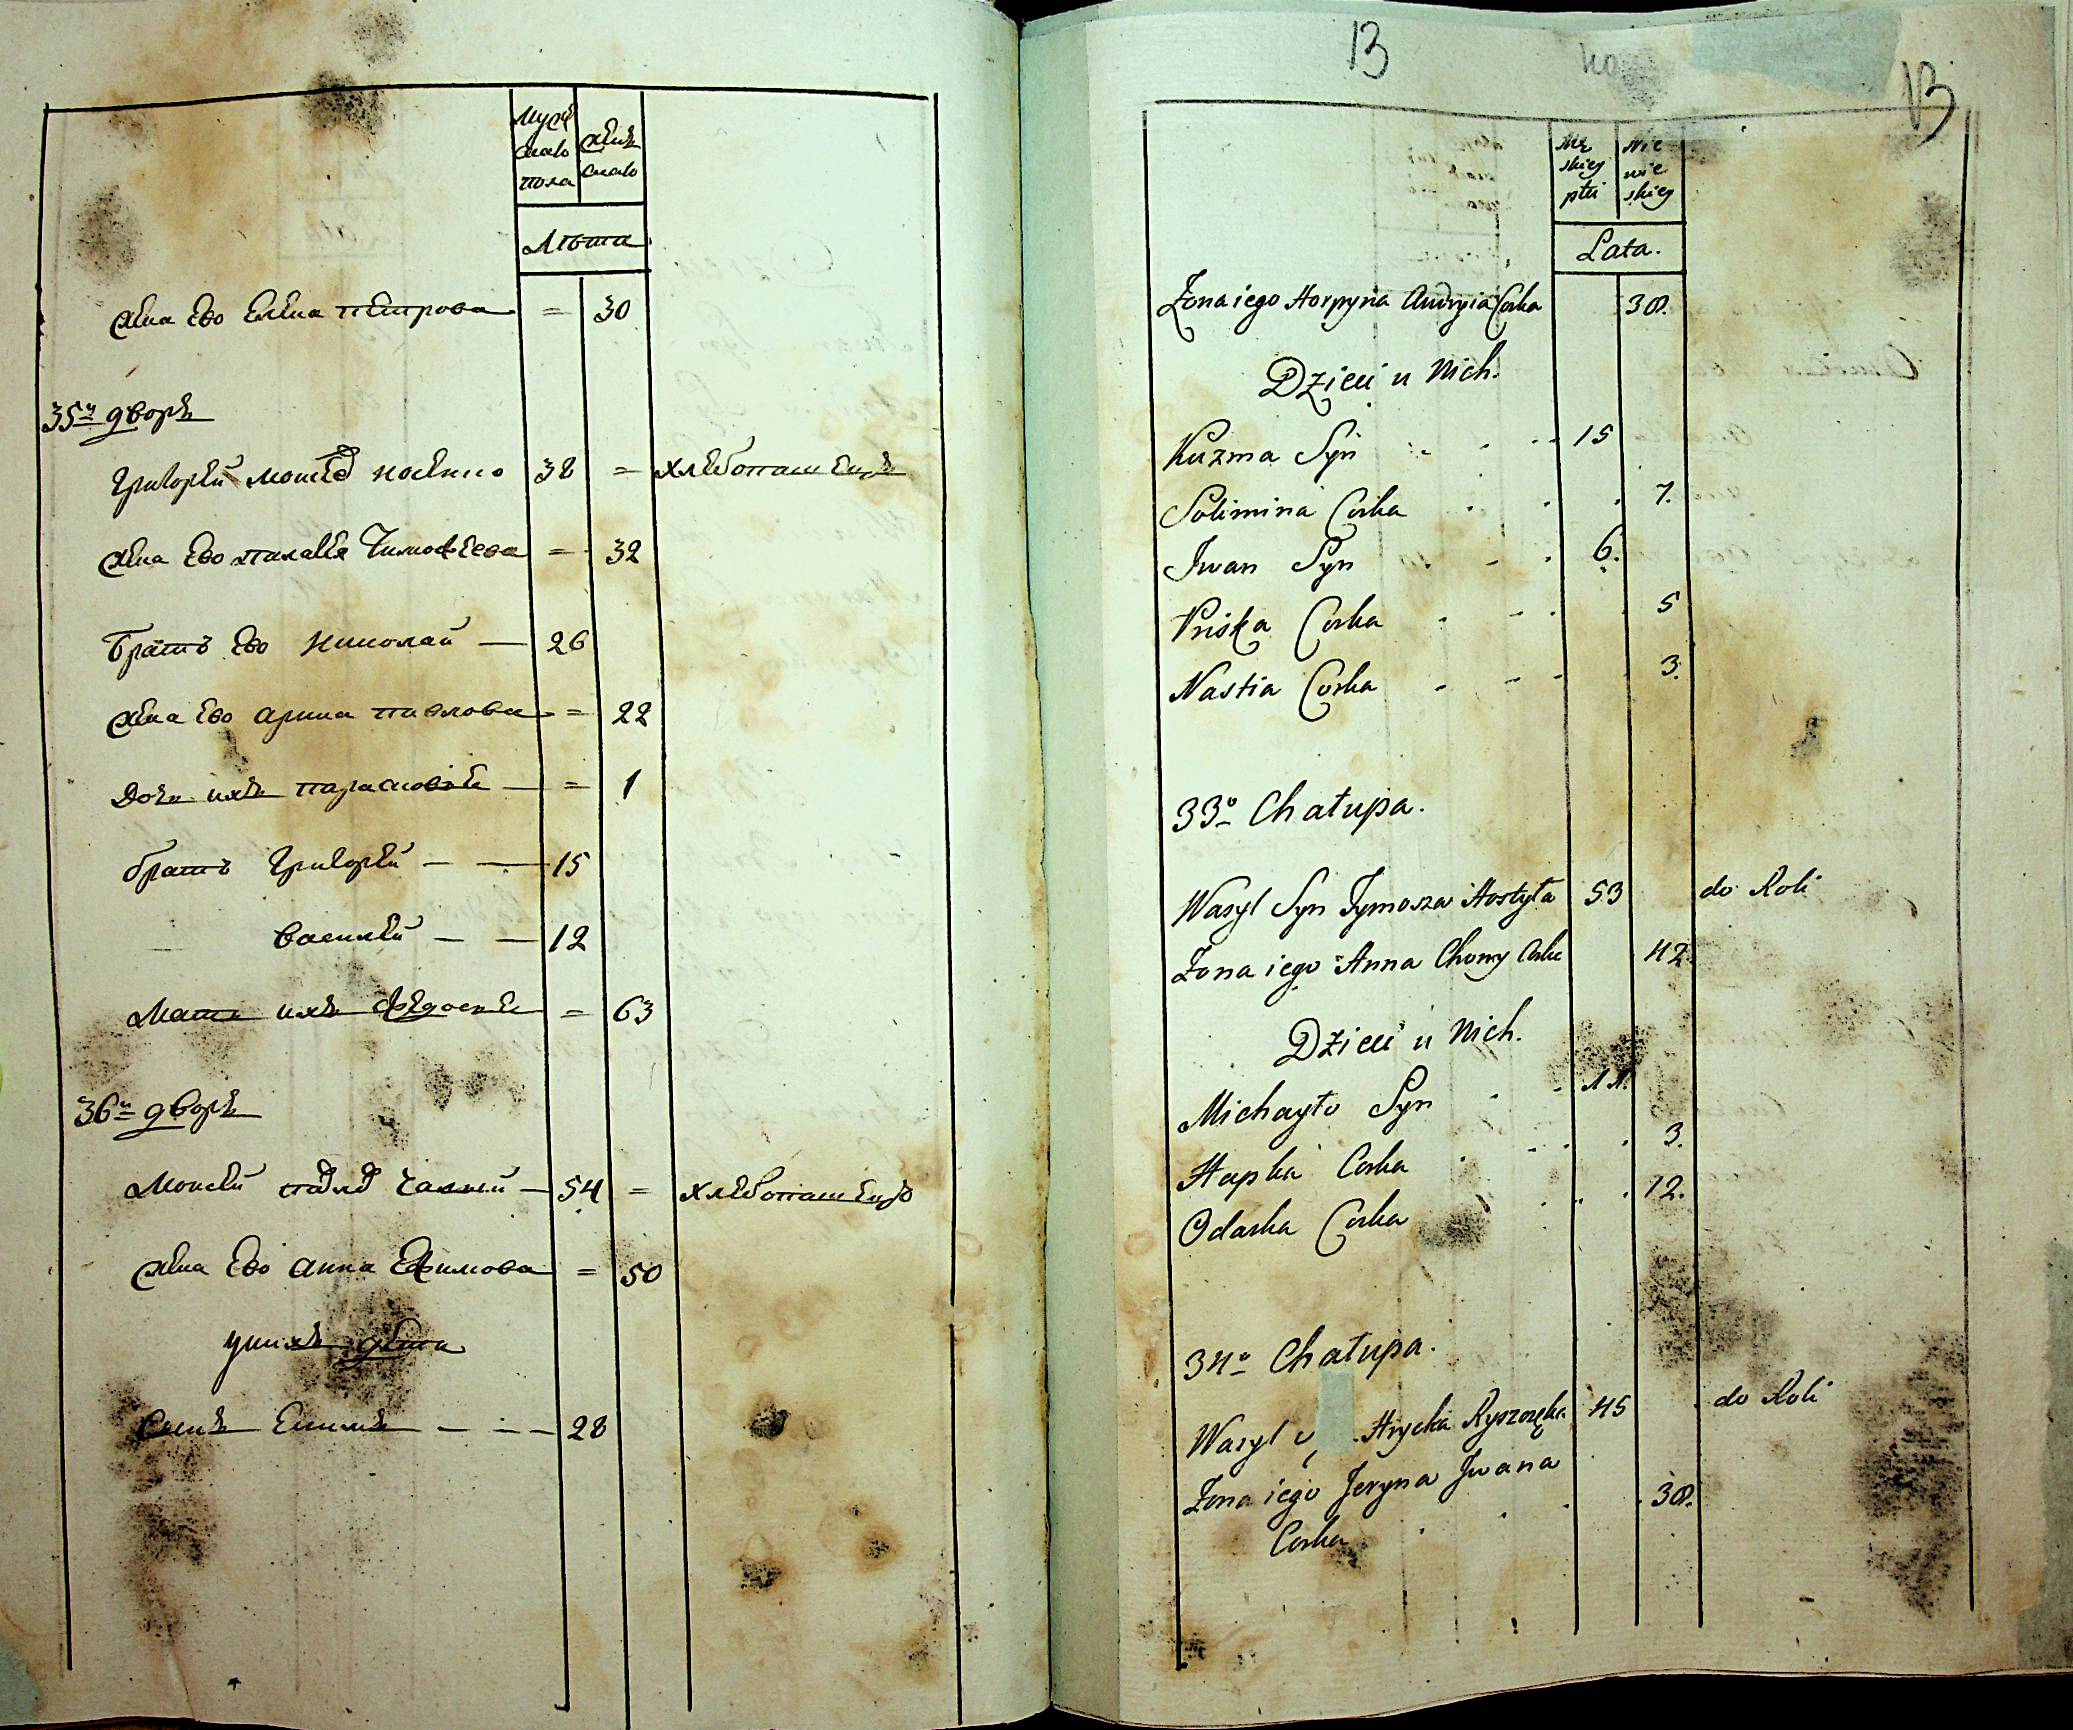 Муж
скаго
пола
жен
скаго
Лѣта
жена ево елена петрова = 30
35й дворъ
Григорей 38 = хлебопашецъ
жена ево палаѣея Тимофеева = 32
братъ ево николай — 26
жена ево арина павлова = 22
дочь ихъ парасковея — = 1
братъ Григорей — — 15
василей — — 12
мать ихъ федосея = 63
36й дворъ
Моисей 54 = хлебопашецъ
жена ево анна Ефимова = 50
у них дети
28
13
13
Mę
skiey
płci
Nie
wie
skiey
Lata.
Zona iego Horpyna Andryia Corka 38.
Dzieci u Nich.
Kuzma Syn 15
Solimina Corka 7.
Jwan Syn 6.
Priska Corka 5
Nastia Corka 3.
33o Chałupa.
Wasyl Syn Tymosza Hostyła 53 do Roli
Zona iego Anna Chomy Corka 42.
Dzieci u Nich.
Michayło Syn 11.
Hapka Corka 3.
Odarka Corka 12.
34o Chałupa.
Wasyl Hrycka 45 do Roli
Zona iego Jeryna Jwana
Corka 38.